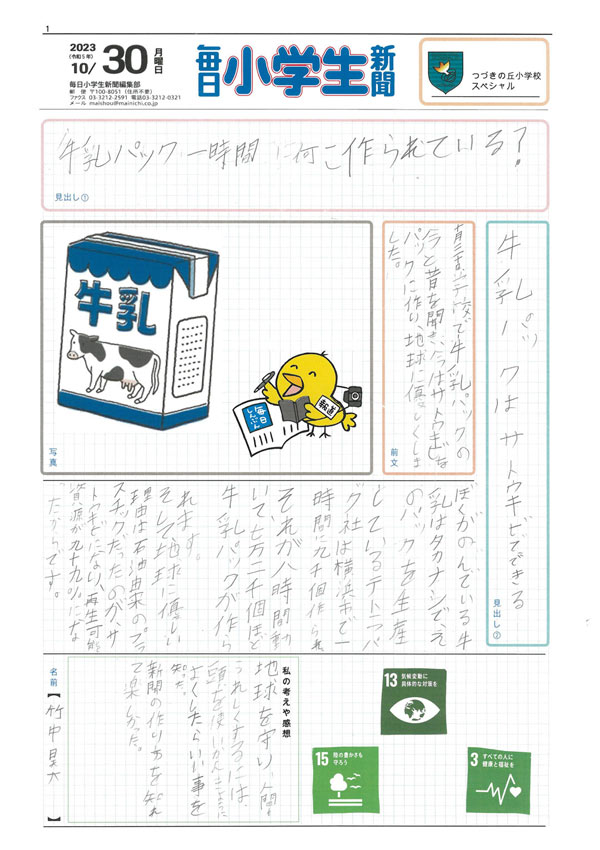 1
2023
(令和5年)
10/30 月曜日
毎日小学生新聞編集部
郵 便 〒100-8051(住所不要)
ファクス 03-3212-2591 電話03-3212-0321
メール maishou@mainichi.co.jp
毎日小学生新聞
つづきの丘小学校
スペシャル
牛乳パック 一時間に何こ作られている?
見出し①
牛乳パックはサトウキビでできる
見出し②
で牛乳パックの
今と昔を聞き、今はサトウキビを
パックに作り、地球に優しくしま
した。
前文
牛乳
毎日
しんぶん
報道
写真
ぼくがのんでいる牛
乳はタカナシでそ
のパックを生産
しているテトラパ
ック社は横浜市で一
時間に九千個作られ
それが八時間動
いて、七万二千個ほど
牛乳パックが作ら
れます。
そして地球に優しい
理由は石油由来のプラ
スチックだったのが、サ
トウキビになり、再生可能
資源が九十九%にな
ったからです。
私の考えや感想
地球を守り、人間も
うれしくするには、
頭を使い
どうしたらいいか事を
知った。
新聞の作り方を知れ
て楽しかった。
名前【竹中 太】
13 気候変動に
具体的な対策を
15 陸の豊かさも
守ろう
3 すべての人に
健康と福祉を